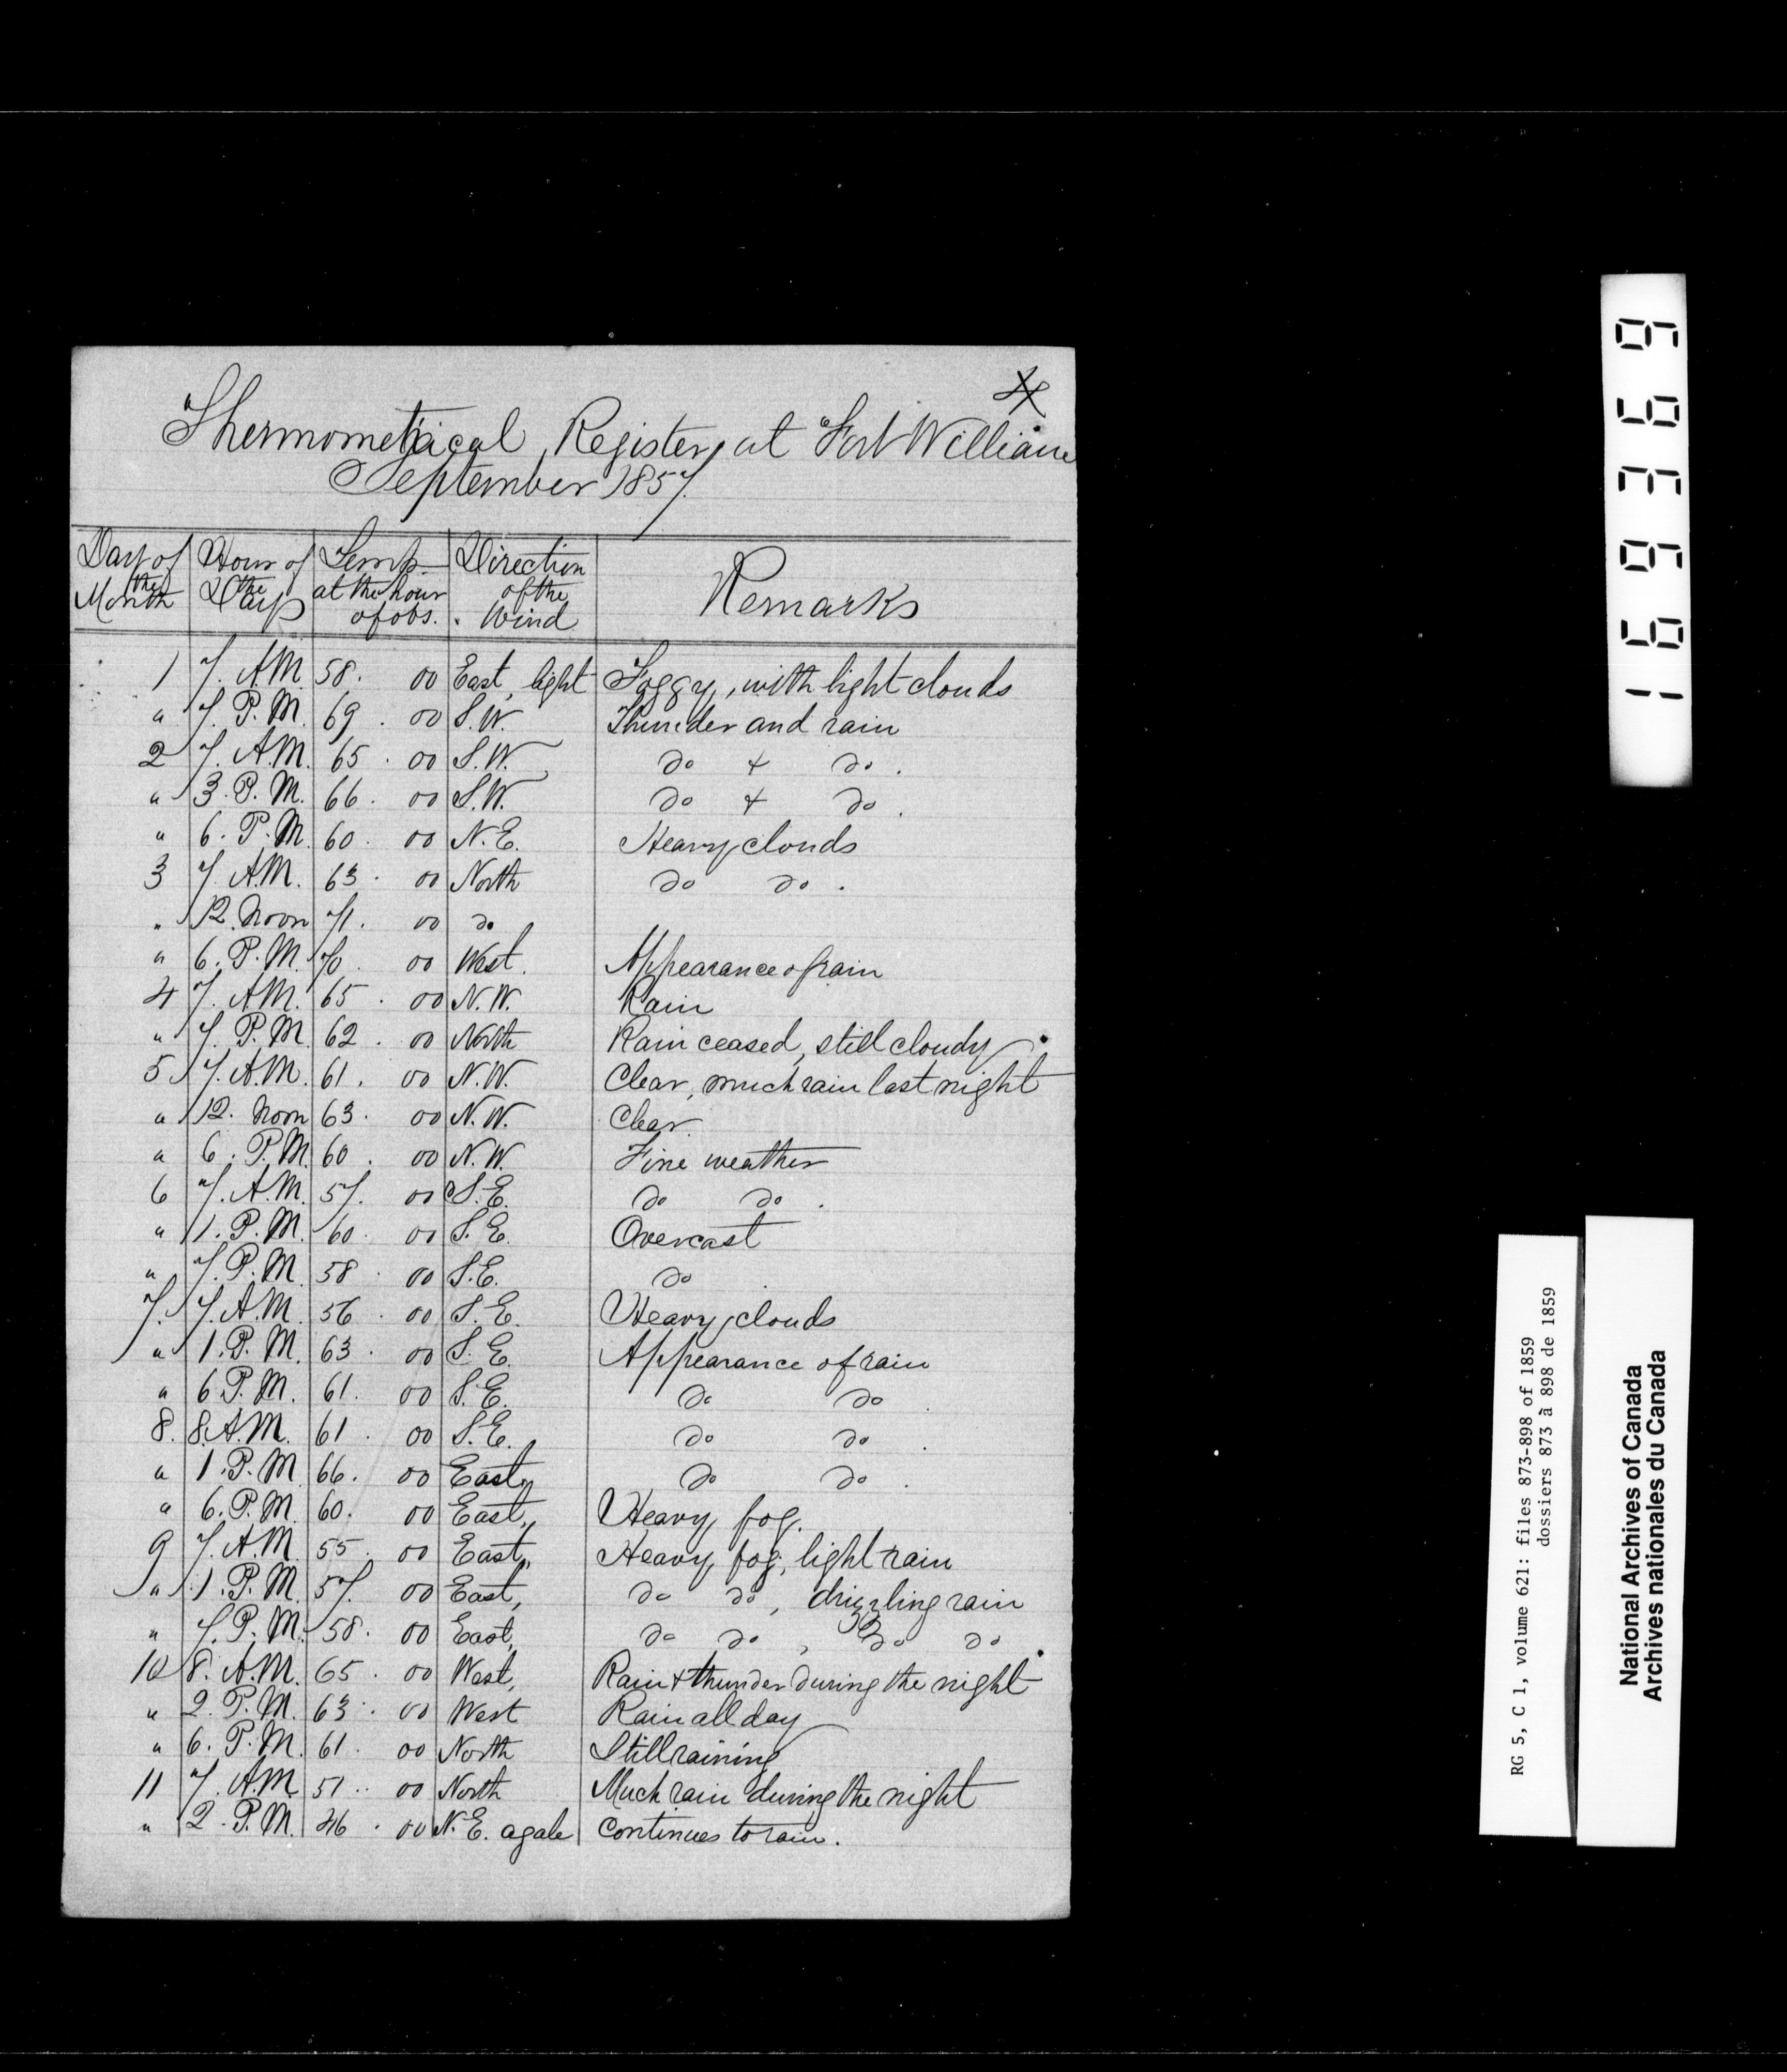 Thermometrical Register, at Fort William
September 1857.
Day of the Month | Hour of the Day | Temp. at the hour of obs. | Direction of the Wind | Remarks
1 7. A.M. 58. 00 East, light Foggy, with light clouds
" 7. P.M. 69. 00 S.W. Thunder and rain
2 7. A.M. 65. 00 S.W. do + do.
" 3. P.M. 66. 00 S.W. do + do.
" 6. P.M. 60. 00 N.E. Heavy clouds
3 7. A.M. 63. 00 North do do.
" 12. Noon 71. 00 do
" 6. P.M. 70. 00 West. Appearance of rain
4 7. A.M. 65. 00 N.W. Rain
" 7. P.M. 62. 00 North Rain ceased, still cloudy.
5 7. A.M. 61. 00 N.W. Clear, much rain last night
" 12. Noon 63. 00 N.W. Clear.
" 6. P.M. 60. 00 N.W. Fine weather
6 7. A.M. 57. 00 S.E. do do.
" 1. P.M. 60. 00 S.E. Overcast
" 7. P.M. 58. 00 S.E. do
7. 7. A.M. 56. 00 S.E. Heavy clouds
" 1. P.M. 63. 00 S.E. Appearance of rain
" 6 P.M. 61. 00 S.E. do do.
8. 8. A.M. 61. 00 S.E. do do.
" 1. P.M. 66. 00 East, do do.
" 6. P.M. 60. 00 East, Heavy fog.
9 7. A.M. 55. 00 East, Heavy fog, light rain
" 1. P.M. 57. 00 East, do do, drizzling rain
" 7. P.M. 58. 00 East, do do, do do.
10 8. A.M. 65. 00 West, Rain + thunder during the night
" 2. P.M. 63. 00 West Rain all day
" 6. P.M. 61. 00 North Still raining
11 7. A.M. 51. 00 North Much rain during the night
" 2. P.M. 46. 00 N.E. a gale Continues to rain.
169369
RG 5, C 1, volume 621: files 873-898 of 1859
dossiers 873 à 898 de 1859
National Archives of Canada
Archives nationales du Canada